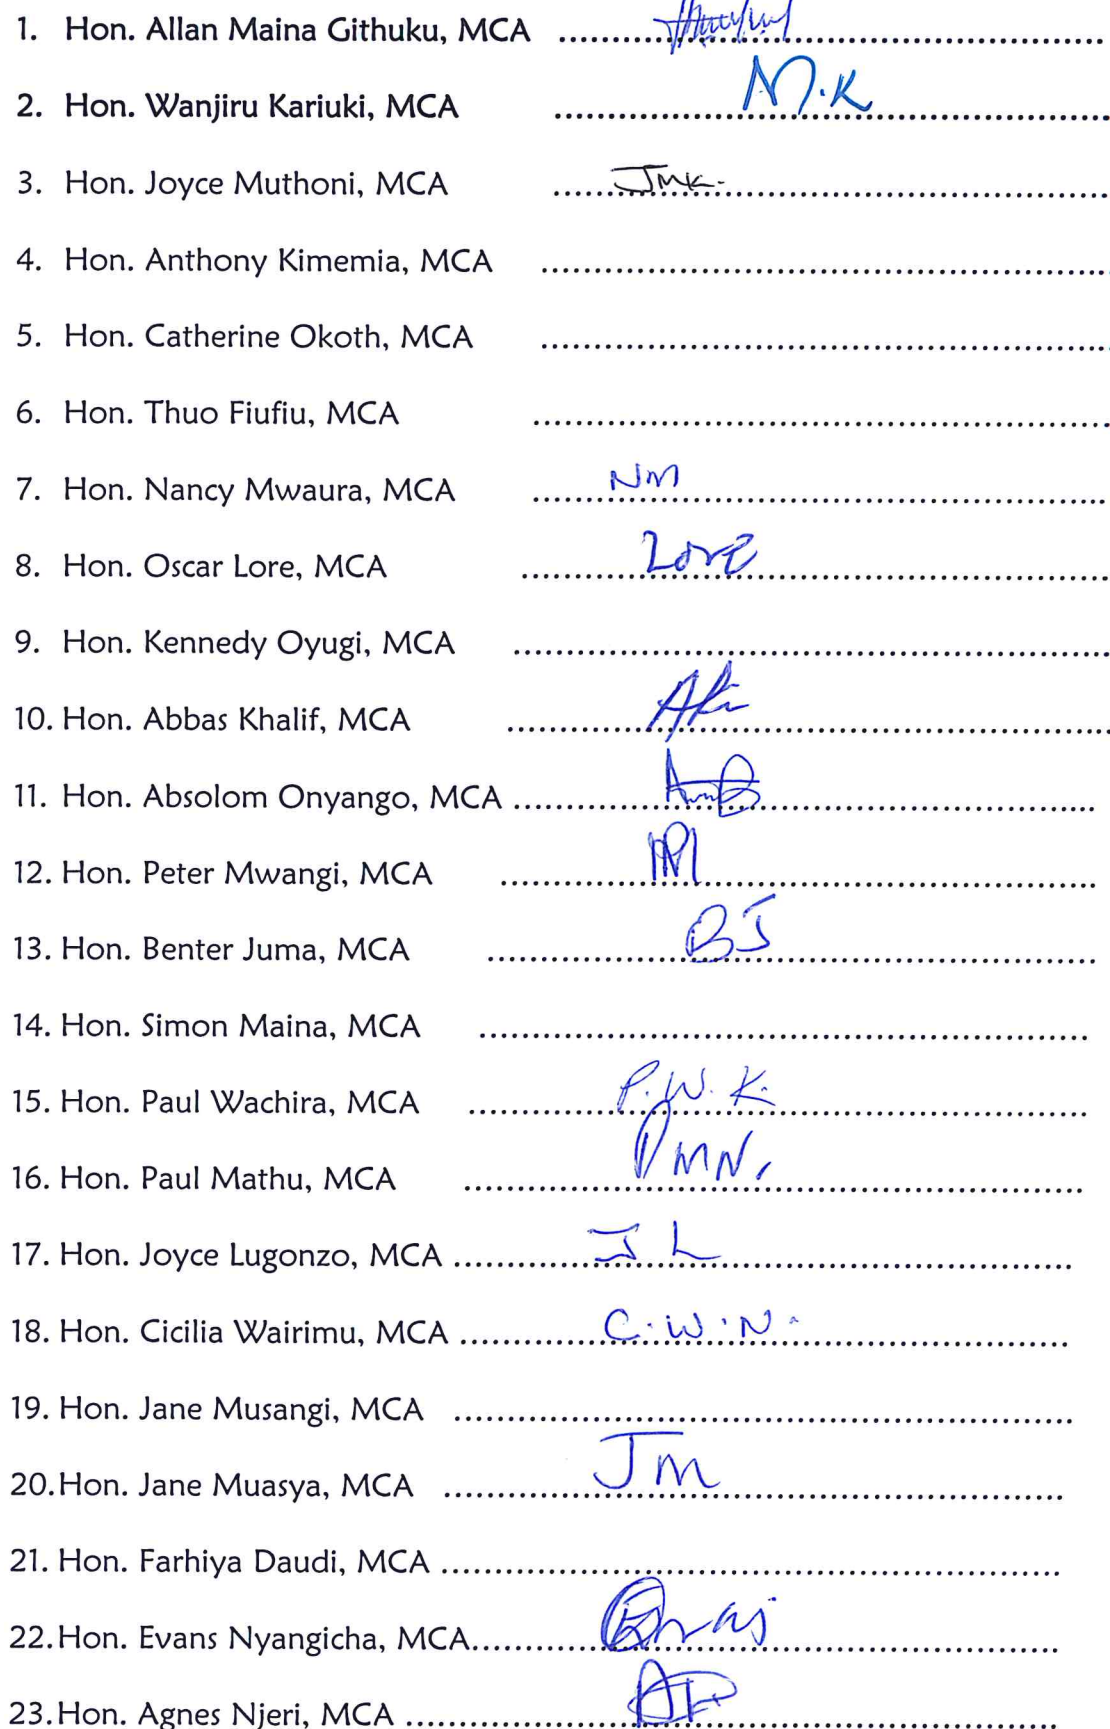 1. Hon. Allan Maina Githuku, MCA ....................
2. Hon. Wanjiru Kariuki, MCA .................... M.K
3. Hon. Joyce Muthoni, MCA .................... JMK.
4. Hon. Anthony Kimemia, MCA ....................
5. Hon. Catherine Okoth, MCA ....................
6. Hon. Thuo Fiufiu, MCA ....................
7. Hon. Nancy Mwaura, MCA .................... NM
8. Hon. Oscar Lore, MCA .................... Lore
9. Hon. Kennedy Oyugi, MCA ....................
10. Hon. Abbas Khalif, MCA ....................
11. Hon. Absolom Onyango, MCA ....................
12. Hon. Peter Mwangi, MCA ....................
13. Hon. Benter Juma, MCA .................... BJ
14. Hon. Simon Maina, MCA ....................
15. Hon. Paul Wachira, MCA .................... P.W.K.
16. Hon. Paul Mathu, MCA .................... PMN.
17. Hon. Joyce Lugonzo, MCA .................... J L
18. Hon. Cicilia Wairimu, MCA .................... C.W.N.
19. Hon. Jane Musangi, MCA ....................
20. Hon. Jane Muasya, MCA .................... JM
21. Hon. Farhiya Daudi, MCA ....................
22. Hon. Evans Nyangicha, MCA ....................
23. Hon. Agnes Njeri, MCA ....................